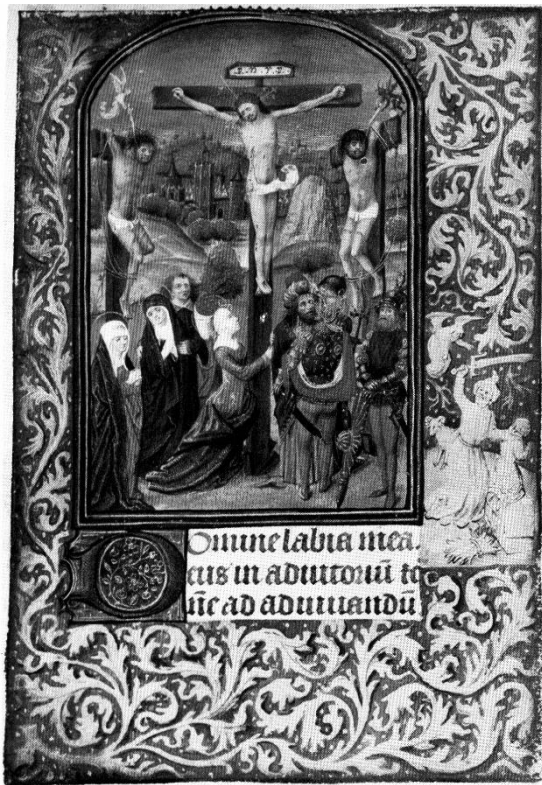 Domine labia mea.
eus in adiutoriū
ad adiuuandū